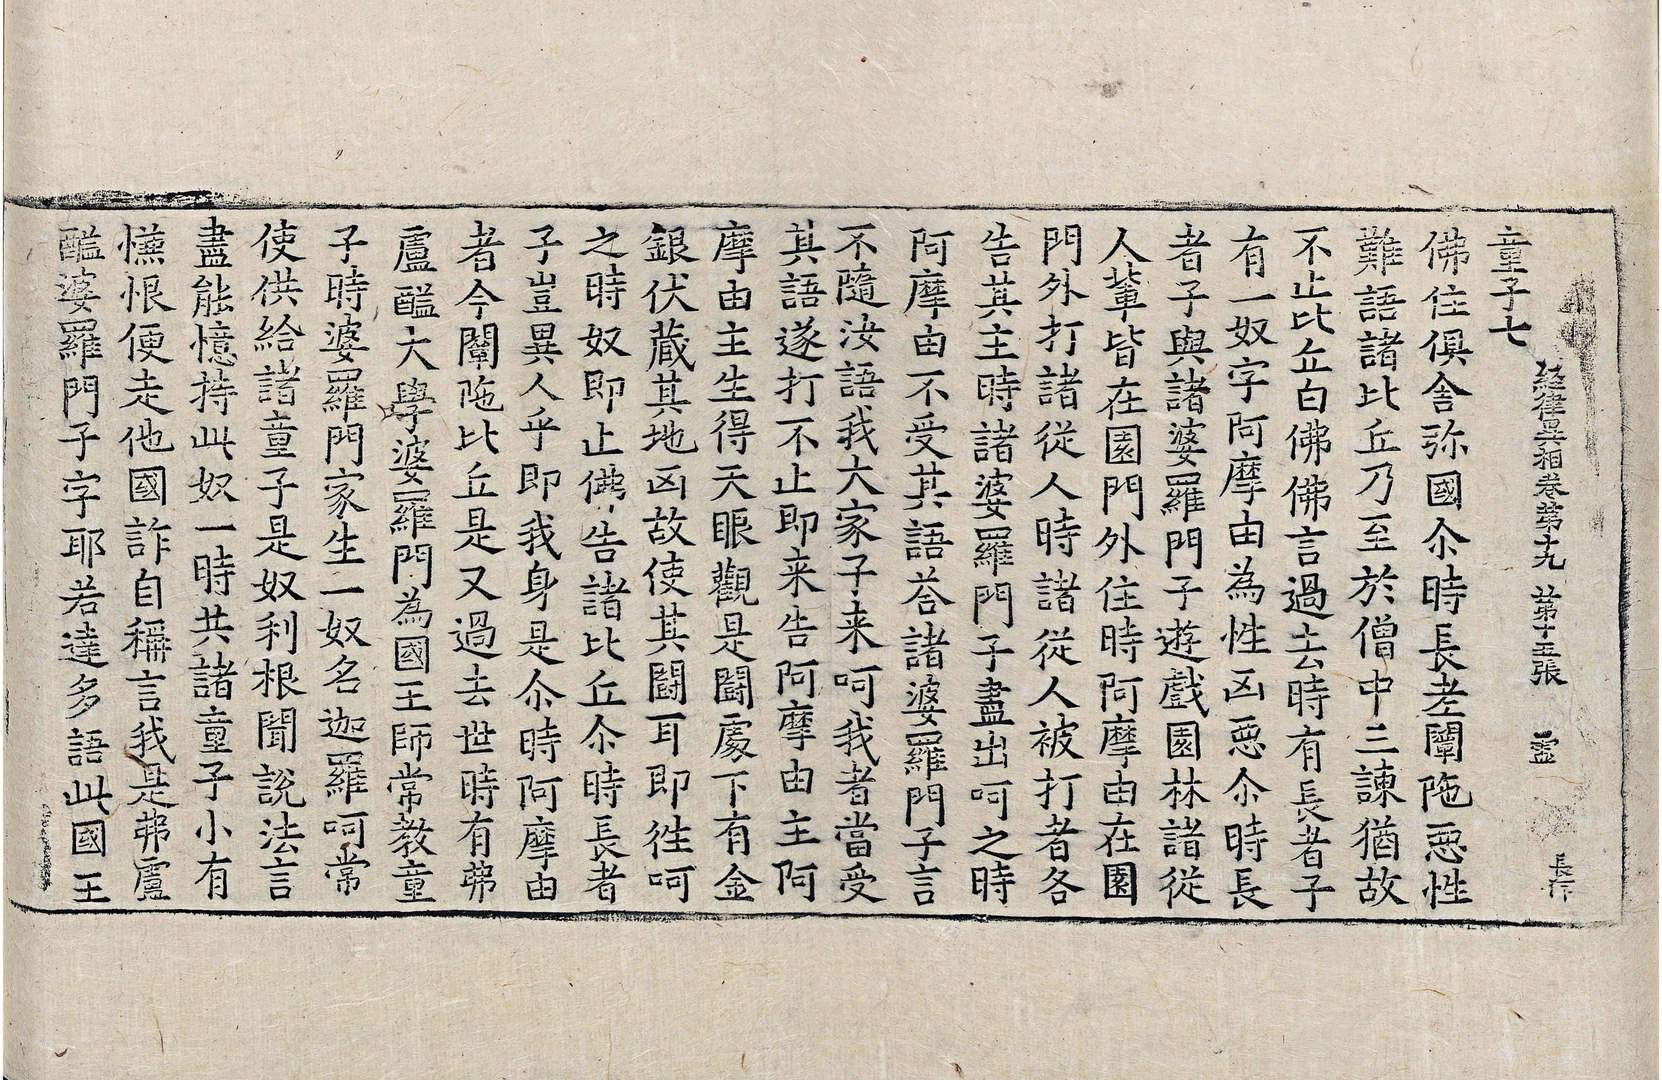 經律異相卷第十九 第十五張 靈 長行
童子七
佛住俱舍弥國尒時長老闡陁惡性
難語諸比丘乃至於僧中三諫猶故
不止比丘白佛佛言過去時有長者子
有一奴字阿摩由為性凶惡尒時長
者子與諸婆羅門子遊戲園林諸從
人輩皆在園門外住時阿摩由在園
門外打諸從人時諸從人被打者各
告其主時諸婆羅門子盡出呵之時
阿摩由不受其語荅諸婆羅門子言
不隨汝語我大家子来呵我者當受
其語遂打不止即来告阿摩由主阿
摩由主生得天眼觀是鬪處下有金
銀伏藏其地凶故使其鬪耳即往呵
之時奴即止佛告諸比丘尒時長者
子豈異人乎即我身是尒時阿摩由
者今闡陁比丘是又過去世時有弗
盧醯大學婆羅門為國王師常教童
子時婆羅門家生一奴名迦羅呵常
使供給諸童子是奴利根聞說法言
盡能憶持此奴一時共諸童子小有
嫌恨便走他國詐自稱言我是弗盧
醯婆羅門子字耶若達多語此國王